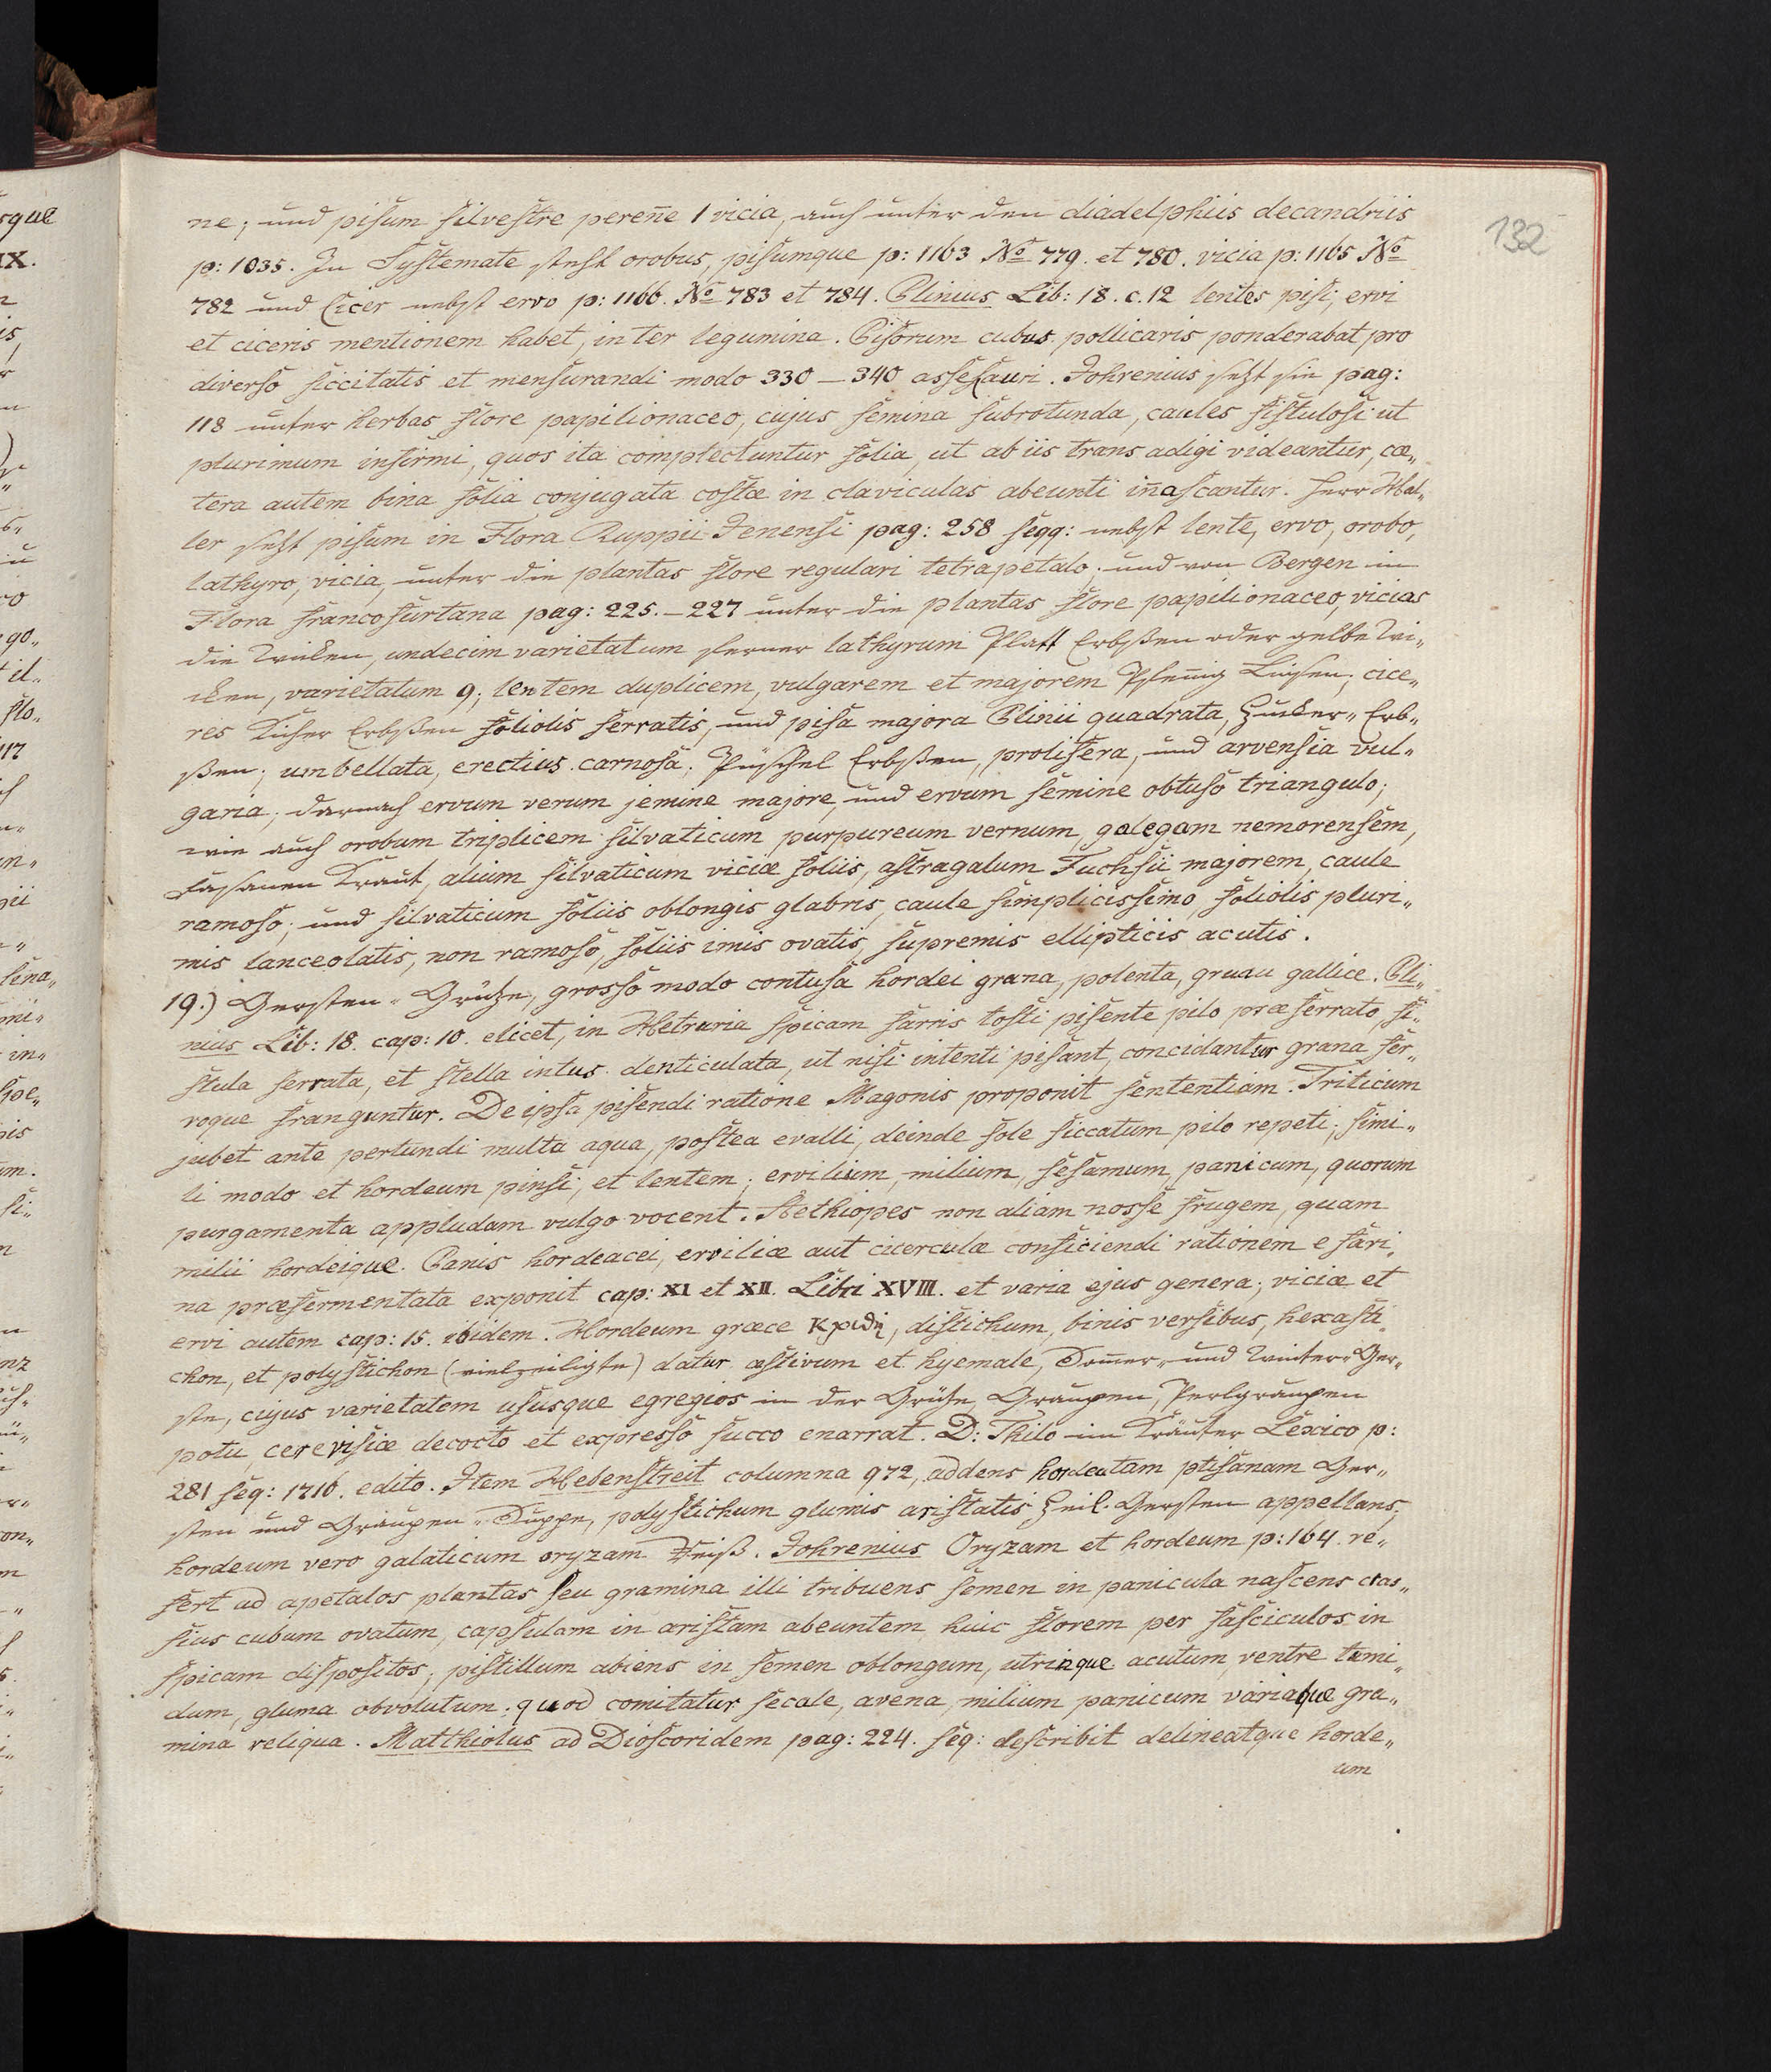 132
ne; und pisum silvestre pereñe 1 vicia, auch unter den diadelphiis decandriis
p: 1035. In Systemate steht orobus, pisumque p: 1163 No 779. et 780. vicia p: 1165 No
782 und Cicer nebst ervo p: 1166. No 783 et 784. Plinius Lib: 18. c. 12 lentes pisi, ervi
et ciceris mentionem habet, inter legumina. Pisorum cubus pollicaris ponderabat pro
diverso siccitatis et mensurandi modo 330 — 340 asse auri. Johrenius setzt sie pag:
118 unter herbas flore papilionaceo, cujus semina subrotunda, caules fistulosi ut
plurimum infirmi, quos ita complectuntur folia, ut ab iis trans adigi videantur, cæ„
tera autem bina folia conjugata costæ in claviculas abeunti iñascantur. Herr Hal„
ler setzt pisum in Flora Ruppii Jenensi pag: 258 seqq: nebst lente, ervo, orobo,
lathyro, vicia, unter die plantas flore regulari tetrapetalo; und von Bergen in
Flora francofurtana pag: 225. — 227 unter die plantas flore papilionaceo, vicias
die Wicken, undecim varietatum ferner lathyrum Platt Erbßen oder gelbe Wi„
cken, varietatum 9; lentem duplicem, vulgarem et majorem Pfennig Linsen; cice„
res Kicher Erbßen foliolis serratis, und pisa majora Plinii quadrata, Zucker„ Erb„
ßen; umbellata, erectius carnosa; Püschel Erbßen, prolifera, und arvensia vul„
garia; darnach ervum verum jemine majore, und ervum semine obtuso triangulo;
wie auch orobum triplicem silvaticum purpureum vernum, galegam nemorensem,
Fasanen Kraut, alium silvaticum viciæ foliis, astragalum Fuchsii majorem, caule
ramoso; und silvaticum foliis oblongis glabris, caule simplicissimo, foliolis pluri„
mis lanceolatis, non ramoso, foliis imis ovatis, supremis ellipticis acutis.
19.) Gersten„ Grütze, grosso modo contusa hordei grana, polenta, gruau gallice. Pli„
nius Lib: 18. cap: 10. elicet, in Hetruria spicam farris tosti pisente pilo præferrato, fi„
stula serrata, et stella intus denticulata, ut nisi intenti pisant, concidantur grana, fer„
roque franguntur. De ipsa pisendi ratione Magonis proponit sententiam. Triticum
jubet ante pertundi multa aqua, postea evalli, deinde sole siccatum pilo repeti; simi„
li modo et hordeum pinsi, et lentem; ervilium, milium, sesamum, panicum, quorum
purgamenta appludam vulgo vocent. Aethiopes non aliam nosse frugem, quam
milii hordeique. Panis hordeacei, erviliæ aut cicerculæ conficiendi rationem e fari„
na præfermentata exponit cap: XI et XII. Libri XVIII. et varia ejus genera; viciæ et
ervi autem cap: 15. ibidem. Hordeum græce κριθη, distichum, binis versibus, hexasti„
chon, et polystichon (vielzeiligte) datur æstivum et hyemale, Som̄er„ und Winter„ Ger„
ste, cujus varietatem ususque egregios in der Grütze, Graupen, Perlgraupen
potu, cerevisiæ decocto et expresso succo enarrat. D: Thilo im Kräuter Lexico p:
281 seq: 1716. edito. Item Hebenstreit columna 972, addens hordeatam ptisanam Ger„
sten und Graupen„ Suppe, polystichum glumis aristatis, Zeil. Gersten appellans;
hordeum vero galaticum oryzam Reiß. Johrenius Oryzam et hordeum p: 164. re„
fert ad apetalos plantas seu gramina illi tribuens semen in panicula nascens cras„
sius cubum ovatum, capsulam in aristam abeuntem, huic florem per fasciculos in
spicam dispositos; pistillum abiens in semen oblongum, utrinque acutum, ventre tumi„
dum, gluma obvolutum: quod comitatur secale, avena, milium panicum variaque gra„
mina reliqua. Matthiolus ad Dioscoridem pag: 224. seq: describit delineatque horde„
um